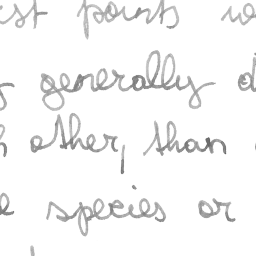 est points w
y generally d
h other, than
e species or